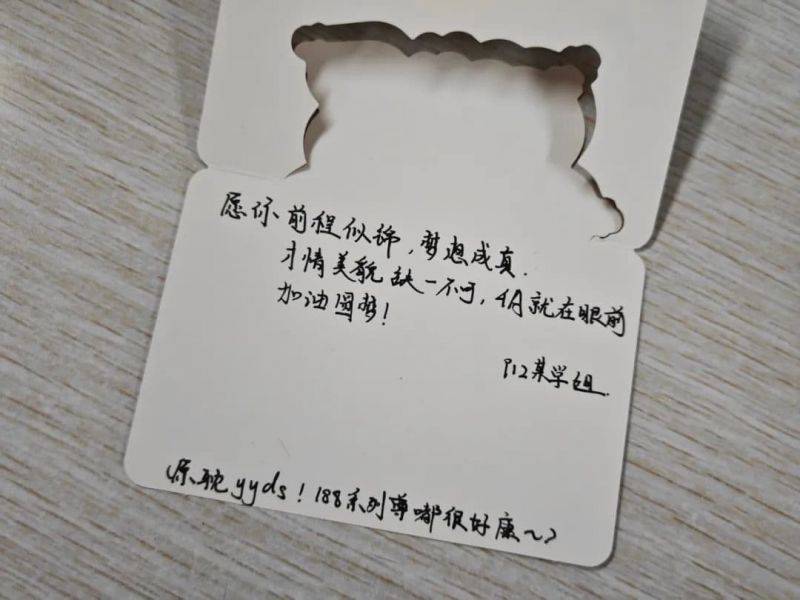 愿你前程似锦,梦想成真.
才情美貌缺一不可,4月就在眼前
加油圆梦!
P12某学姐.
原耽yyds!188系列尊嘟很好康~~